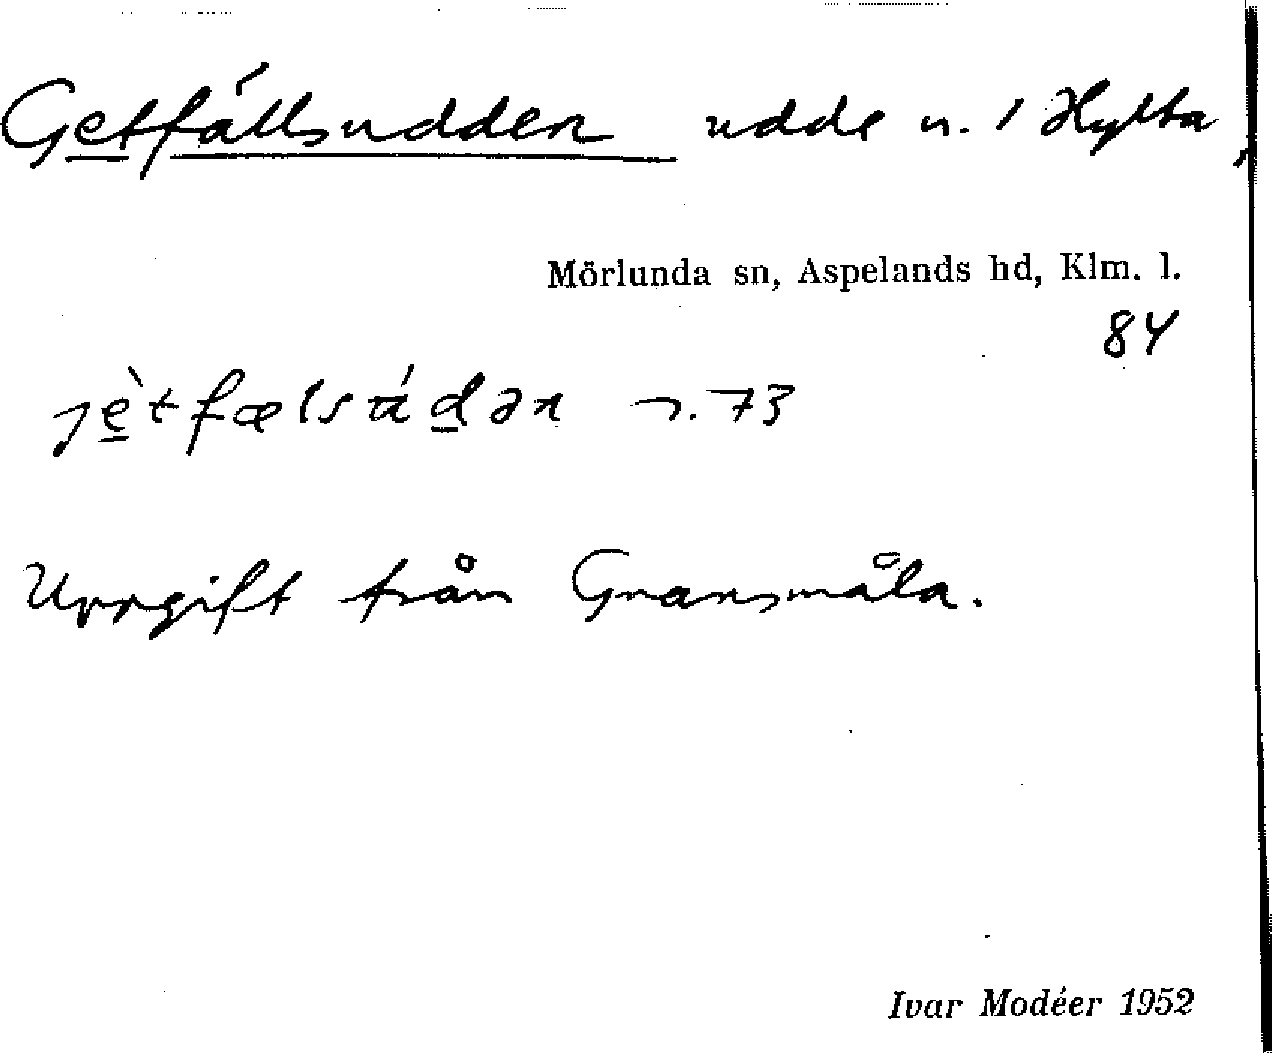 Getfállsudden udde n. i Hylta,
Mörlunda sn, Aspelands hd, Klm. l.
84
jètfælsúdən 73
Uppgift från Gransmåla.
Ivar Modéer 1952